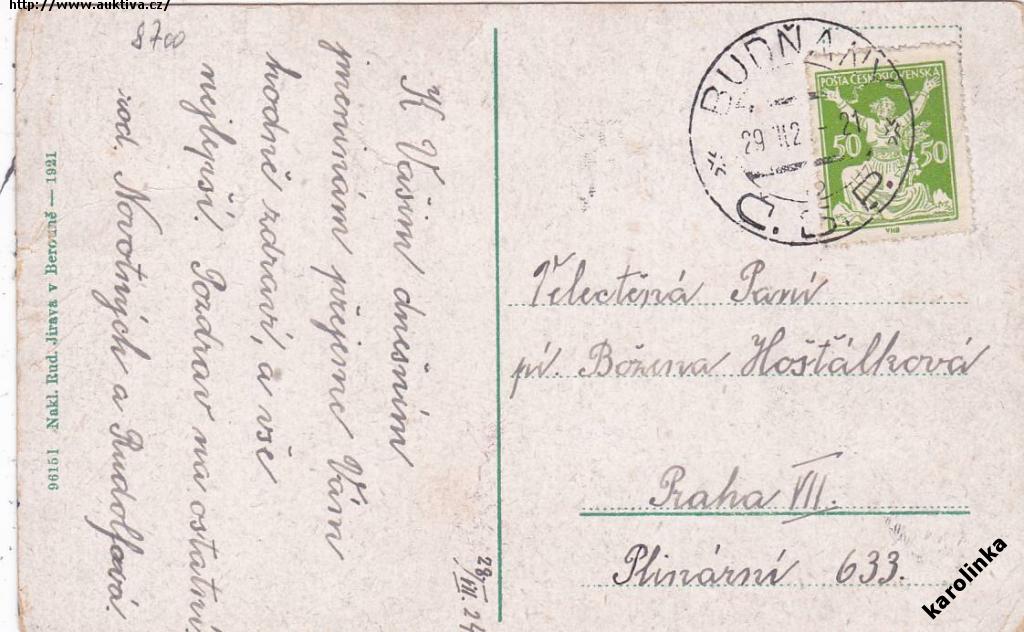 http://www.auktiva.cz/
8700
K Vašim dnešním
jmeninám přejeme Vám
hodně zdraví, a vše
nejlepší. Pozdrav na ostatní
rod. Novotných a Rudolfová.
28. VIII. 24
96151 Nakl. Rud. Jirava v Berouně — 1921
BUDŇANY
Č. S. P.
POŠTA ČESKOSLOVENSKÁ
50 50
VHB
Velectěná Paní
pí. Božena Hošťálková
Praha VII.
Plinární 633.
karolinka